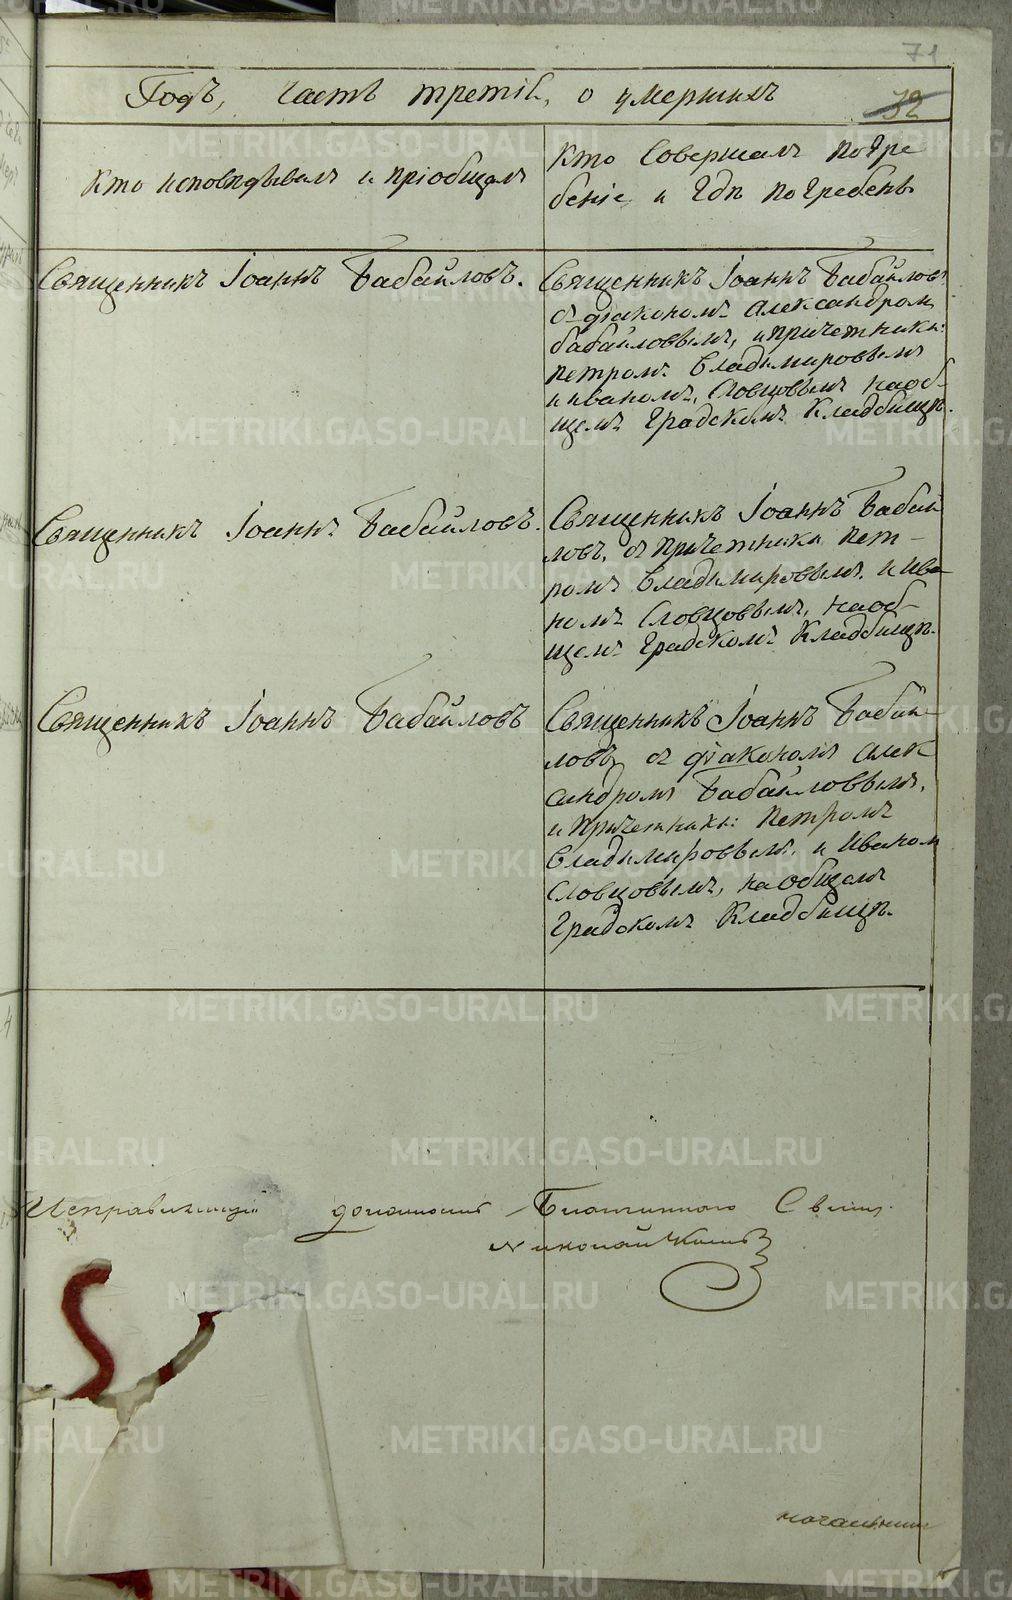 71
Годъ, часть третія, о умершихъ
32
Кто исповѣдывалъ и пріобщалъ
Кто Совершалъ погре
беніе и гдѣ погребенъ
Священникъ Іоаннъ Бабайловъ.
Священникъ Іоаннъ Бабайловъ
съ діакономъ Александром
бабайловымъ, и причетники:
Петромъ Владимировымъ
и иваномъ, Словцовымъ наоб-
щемъ градскомъ Кладбищѣ.
Священникъ Іоаннъ Бабайловъ.
Священникъ Іоаннъ Бабай
ловъ, съ причетники Пет-
ромъ Владимировымъ, и Ива
номъ Словцовымъ, наоб-
щемъ градскомъ Кладбищѣ.
Священникъ Іоаннъ Бабайловъ
Священникъ Іоаннъ Бабай-
ловъ съ діакономъ алек
сандромъ Бабайловымъ,
и причетники: Петромъ
Владимировымъ, и Иваном
Словцовымъ, на общемъ
градскомъ Кладбищѣ.
Исправляющій должность Благочиннаго Священ.
Николай
METRIKI.GASO-URAL.RU